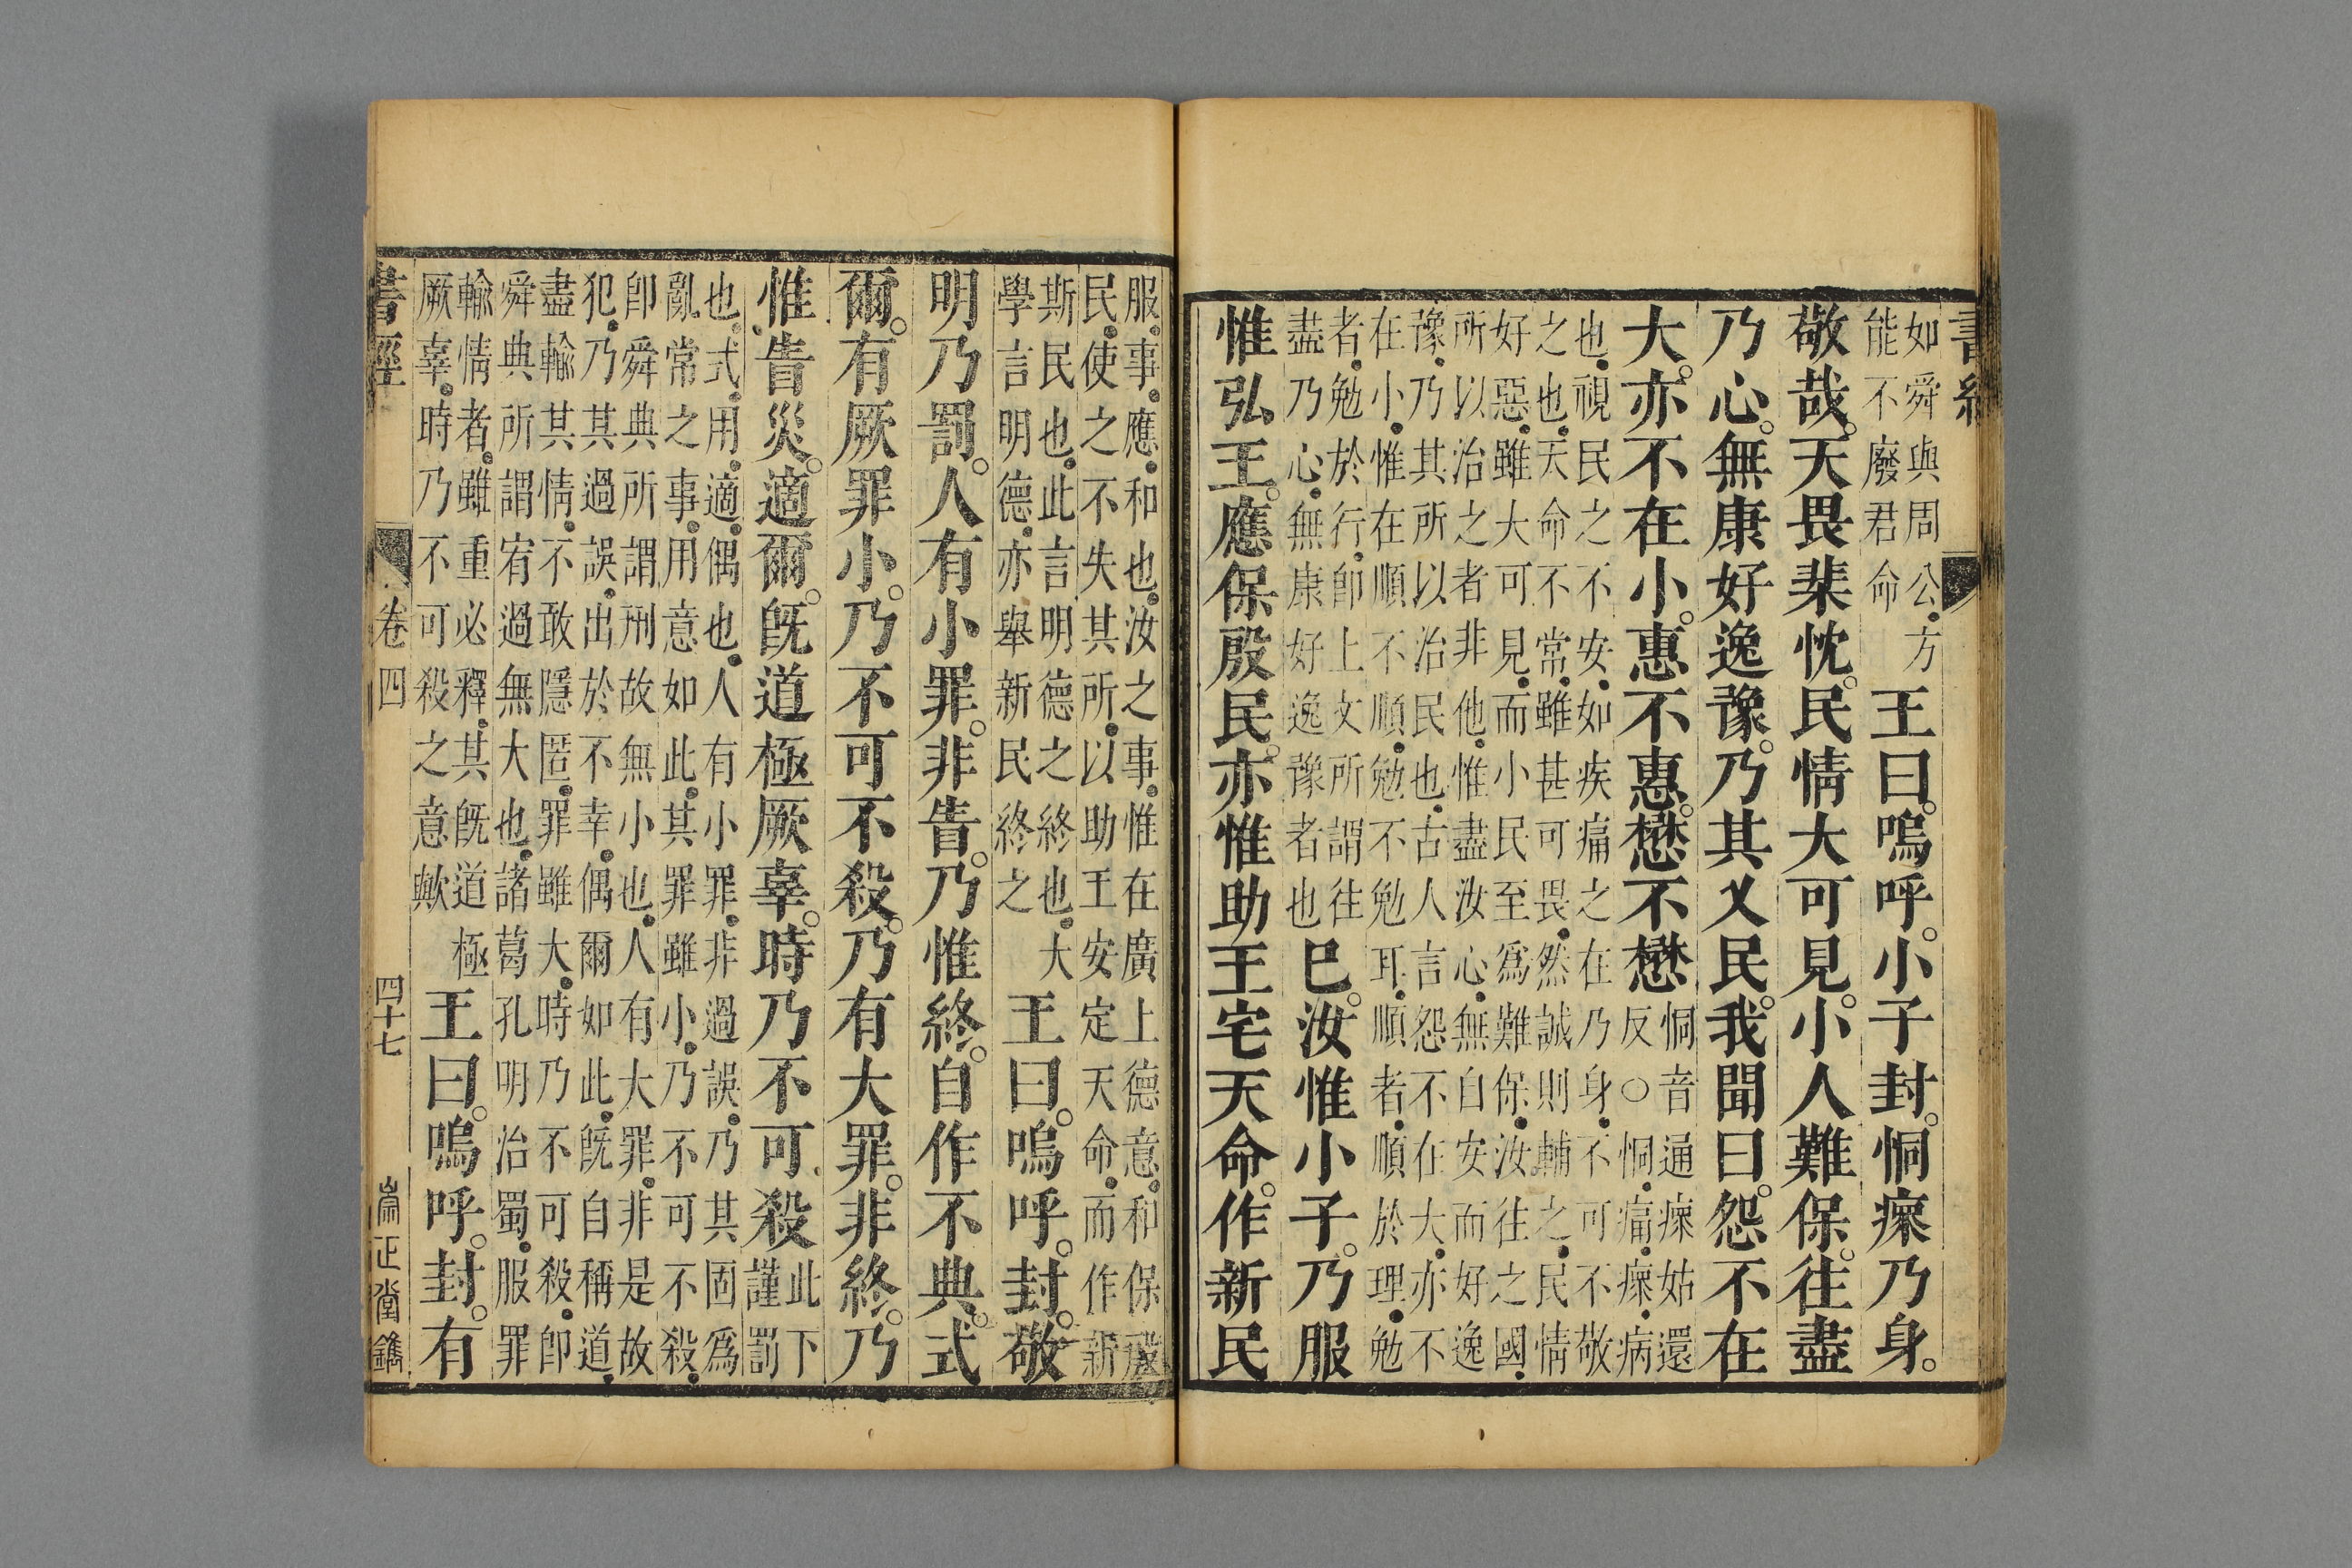 如舜與周公、方
能不廢君命
王曰。嗚呼。小子封。恫瘝乃身。
敬哉。天畏棐忱。民情大可見。小人難保。往盡
乃心。無康好逸豫。乃其乂民。我聞曰。怨不在
大。亦不在小。惠不惠。懋不懋
恫音通瘝姑還
反○恫、痛、瘝、病
也、視民之不安、如疾痛之在乃身、不可不敬
之也、天命不常、雖甚可畏、然誠則輔之、民情
好惡、雖大可見、而小民至爲難保、汝往之國、
所以治之者非他、惟盡汝心、無自安而好逸
豫、乃其所以治民也、古人言怨不在大、亦不
在小、惟在順不順、勉不勉耳、順者、順於理、勉
者、勉於行、卽上文所謂往
盡乃心、無康好逸豫者也
巳。汝惟小子。乃服
惟弘王。應保殷民。亦惟助王宅天命。作新民
服、事、應、和也、汝之事、惟在廣上德意、和保殷
民、使之不失其所、以助王安定天命、而作新
斯民也、此言明德之終也、大
學言明德、亦舉新民終之
王曰。嗚呼。封。敬
明乃罰。人有小罪。非眚。乃惟終。自作不典。式
爾。有厥罪小。乃不可不殺。乃有大罪。非終。乃
惟眚災。適爾。旣道極厥辜。時乃不可殺
此下
謹罰
也、式、用、適、偶也、人有小罪、非過誤、乃其固爲
亂常之事、用意如此、其罪雖小、乃不可不殺、
卽舜典所謂刑故無小也、人有大罪、非是故
犯、乃其過誤、出於不幸、偶爾如此、旣自稱道、
盡輸其情、不敢隱匿、罪雖大、時乃不可殺、卽
舜典所謂宥過無大也、諸葛孔明治蜀、服罪
輸情者、雖重必釋、其旣道極
厥辜、時乃不可殺之意歟
王曰。嗚呼。封。有
書經 卷四 四十七 崇正堂鐫